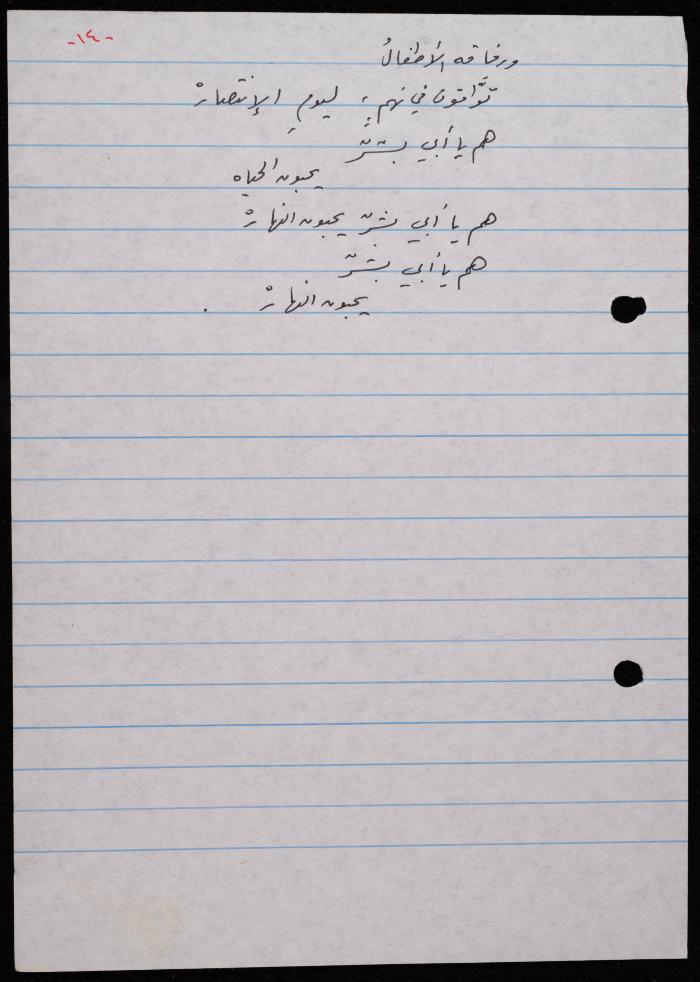 -١٤-
ورفاقه الأطفالُ
توَّاقون في نهم، ليومِ الإنتصارْ
هم يا أبي بشرٌ
يحبون الحياه
هم يا أبي بشرٌ يحبون النهارْ
هم يا أبي بشرٌ
يحبون النهارْ .